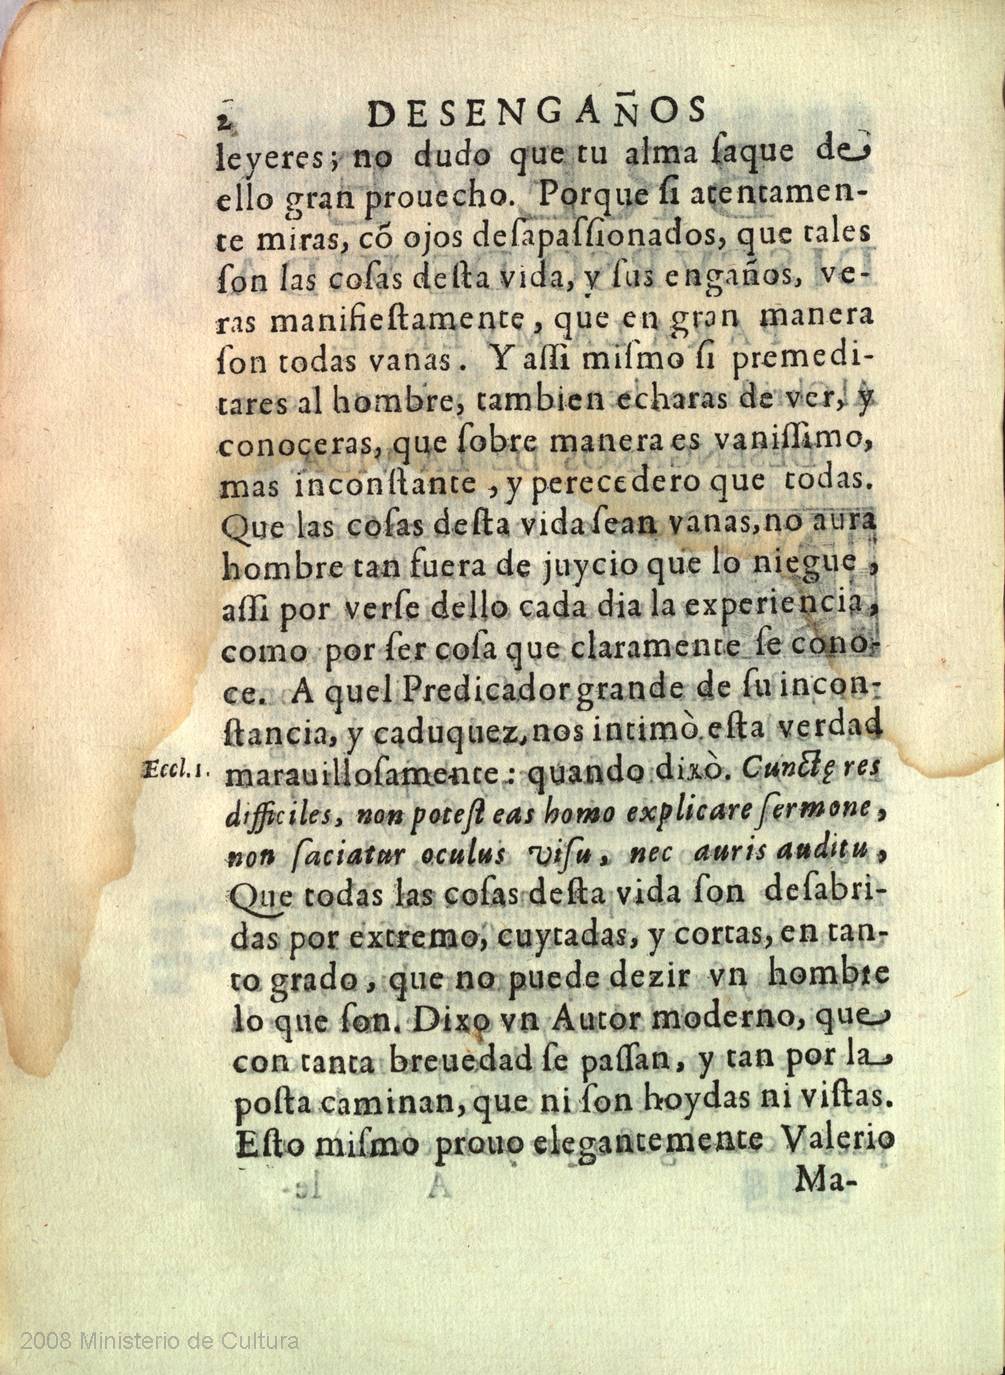 2 DESENGAÑOS
leyeres; no dudo que tu alma ſaque de
ello gran prouecho. Porque ſi atentamen-
te miras, cõ ojos deſapaſſionados, que tales
ſon las coſas deſta vida, y ſus engaños, ve-
ras manifieſtamente, que en gran manera
ſon todas vanas. Y aſſi miſmo ſi premedi-
tares al hombre, tambien echaras de ver, y
conoceras, que ſobre manera es vaniſſimo,
mas inconſtante, y perecedero que todas.
Que las coſas deſta vida ſean vanas, no aura
hombre tan fuera de juycio que lo niegue,
aſſi por verſe dello cada dia la experiencia,
como por ſer coſa que claramente ſe cono-
ce. A quel Predicador grande de ſu incon-
ſtancia, y caduquez, nos intimò eſta verdad
Eccl. 1. marauilloſamente: quando dixò. Cunctę res
difficiles, non poteſt eas homo explicare ſermone,
non ſaciatur oculus viſu, nec auris auditu,
Que todas las coſas deſta vida ſon deſabri-
das por extremo, cuytadas, y cortas, en tan-
to grado, que no puede dezir vn hombre
lo que ſon. Dixo vn Autor moderno, que
con tanta breuedad ſe paſſan, y tan por la
poſta caminan, que ni ſon hoydas ni viſtas.
Eſto miſmo prouo elegantemente Valerio
Ma-
2008 Ministerio de Cultura